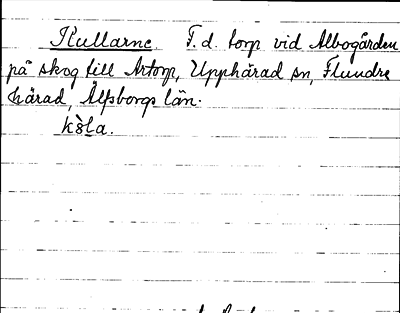 Kullarne. F.d. torp vid Albogården
på skog till Artorp, Upphärad sn, Flundre
härad, Älfsborgs län.
kə̀la.